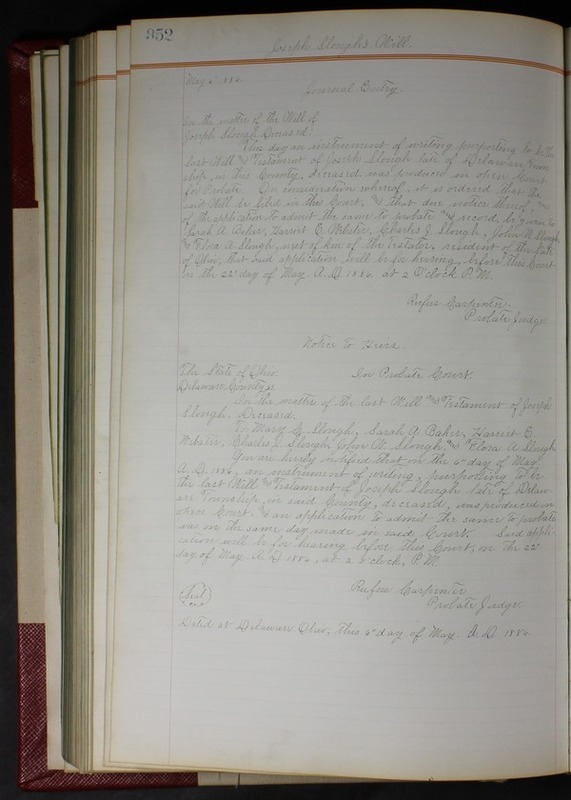 352
Joseph Slough's Will.
May 6" 1886.
Journal Entry.
In the matter of the Will of
Joseph Slough Deceased:
This day an instrument of writing purporting to be the
last Will and Testament of Joseph Slough late of Delaware Town
ship, in this County, deceased was produced in open Court
for Probate. On consideration whereof, it is ordered that the
said Will be filed in this Court, & that due notice thereof, and
of the application to admit the same to probate and record be given to
Sarah A. Baker, Harriet E. Webster, Charles J. Slough, John W. Slough
& Flora A. Slough, next of kin of the testator, resident of the State
of Ohio, that said application will be for hearing, before this Court
on the 22" day of May A.D. 1886. at 2 O'clock P.M.
Rufus Carpenter.
Probate Judge
Notice to Heirs.
The State of Ohio
In Probate Court.
Delaware County ss.
In the matter of the last Will and Testament of Joseph
Slough, Deceased.
To Mary Slough, Sarah A. Baker, Harriet E.
Webster, Charles J. Slough John W. Slough and Flora A. Slough
You are hereby notified that on the 6" day of May
A.D. 1886, an instrument of writing, purporting to be
the last Will and Testament of Joseph Slough late of Delaw
are Township, in said County, deceased, was produced in
open Court. & an application to admit the same to probate
was on the same day made in said Court. Said appli-
cation will be for hearing before this Court, on the 22"
day of May A.D 1886, at 2 o'clock, P.M.
Rufus Carpenter
Probate Judge
Seal
Dated at Delaware Ohio, this 6" day of May. A.D. 1886